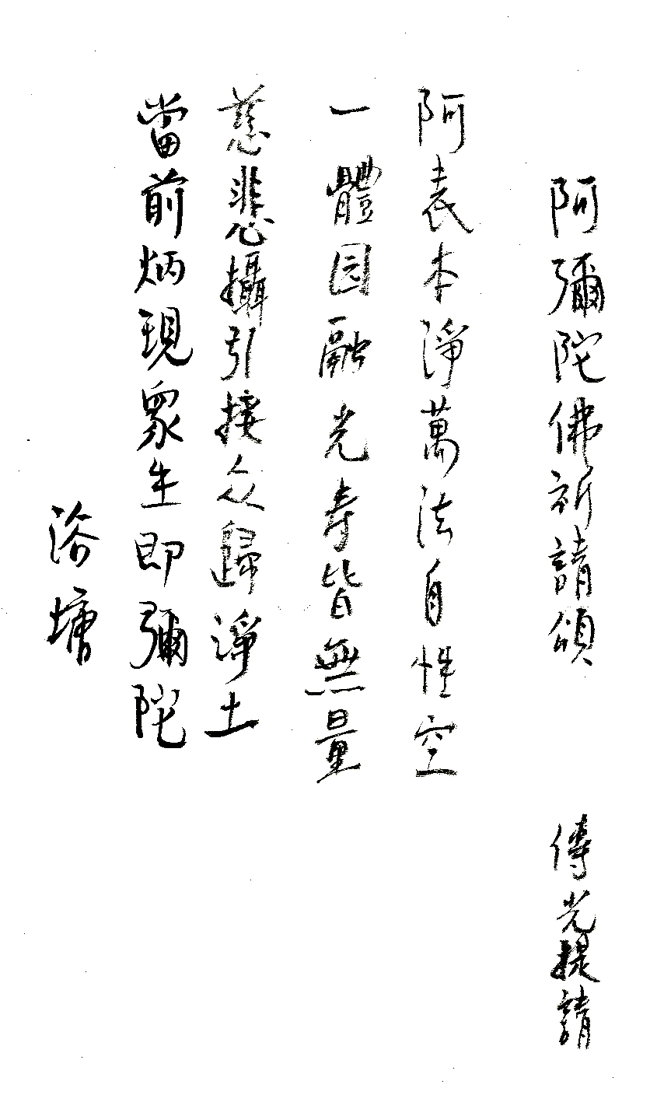 阿彌陀佛祈請頌 傳光提請
阿表本淨萬法自性空
一體圆融光壽皆無量
慈悲攝引接众歸淨土
當前炳現眾生即彌陀
浴塘